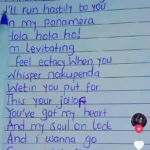 I'll run hastily to you
in my panamera
Hola hola ho!
m levitating
I feel ectacy when you
Whisper nakupenda
Wetin you put for
Thu your jollof
You've got my heart
And my soul on lock
And I wanna go